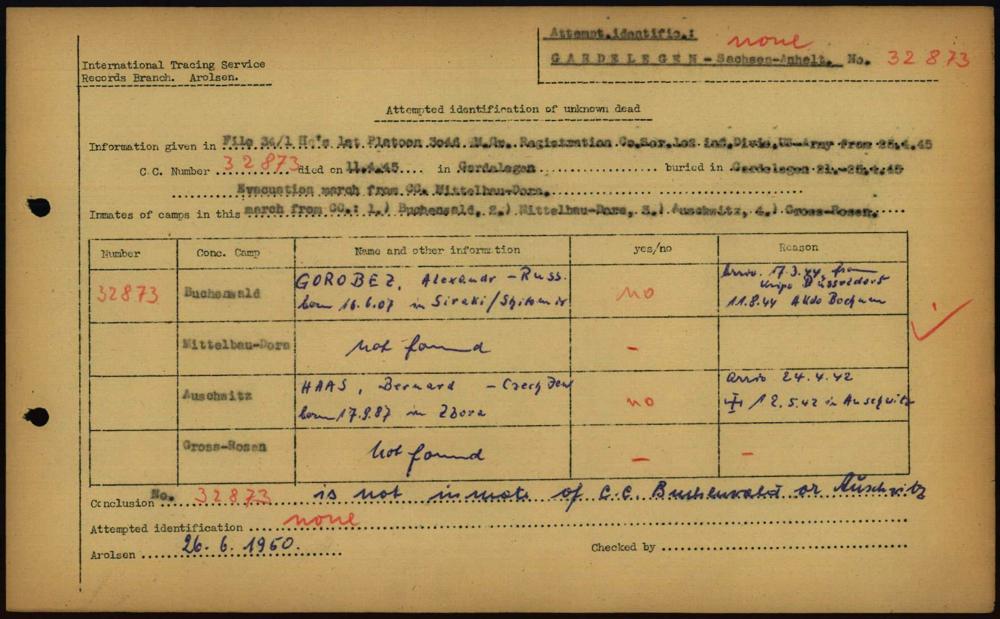 Attempt.identific.: none
GARDELEGEN - Sachsen-Anhalt. No. 32 873
International Tracing Service
Records Branch. Arolsen.
Attempted identification of unknown dead
Information given in File 34/1 Hq's 1st Platoon 3044 Registration Co. 102 inf. Divis, US-Army from 25.4.45
C.C. Number 32873 died on 11.4.45 in Gardelegen buried in Gardelegen 21.-25.4.45
Evacuation march from CC. Mittelbau-Dora.
Inmates of camps in this march from CC.: 1.) Buchenwald, 2.) Mittelbau-Dora, 3.) Auschwitz, 4.) Gross-Rosen.
Number Conc. Camp Name and other information yes/no Reason
32873 Buchenwald GOROBEZ, Alexandr - Russ. no Arriv. 17.3.44 from
born 16.6.07 in Siraki/Shitomir Kripo Düsseldorf
11.8.44 AKdo Bochum
Mittelbau-Dora not found -
Auschwitz HAAS, Bernard - Czech Jew no arriv 24.4.42
born 17.9.87 in Zbora 12.5.42 in Auschwitz
Gross-Rosen not found - -
Conclusion No. 32873 is not inmate of C.C. Buchenwald or Auschwitz
Attempted identification none
Arolsen 26.6.1950. Checked by